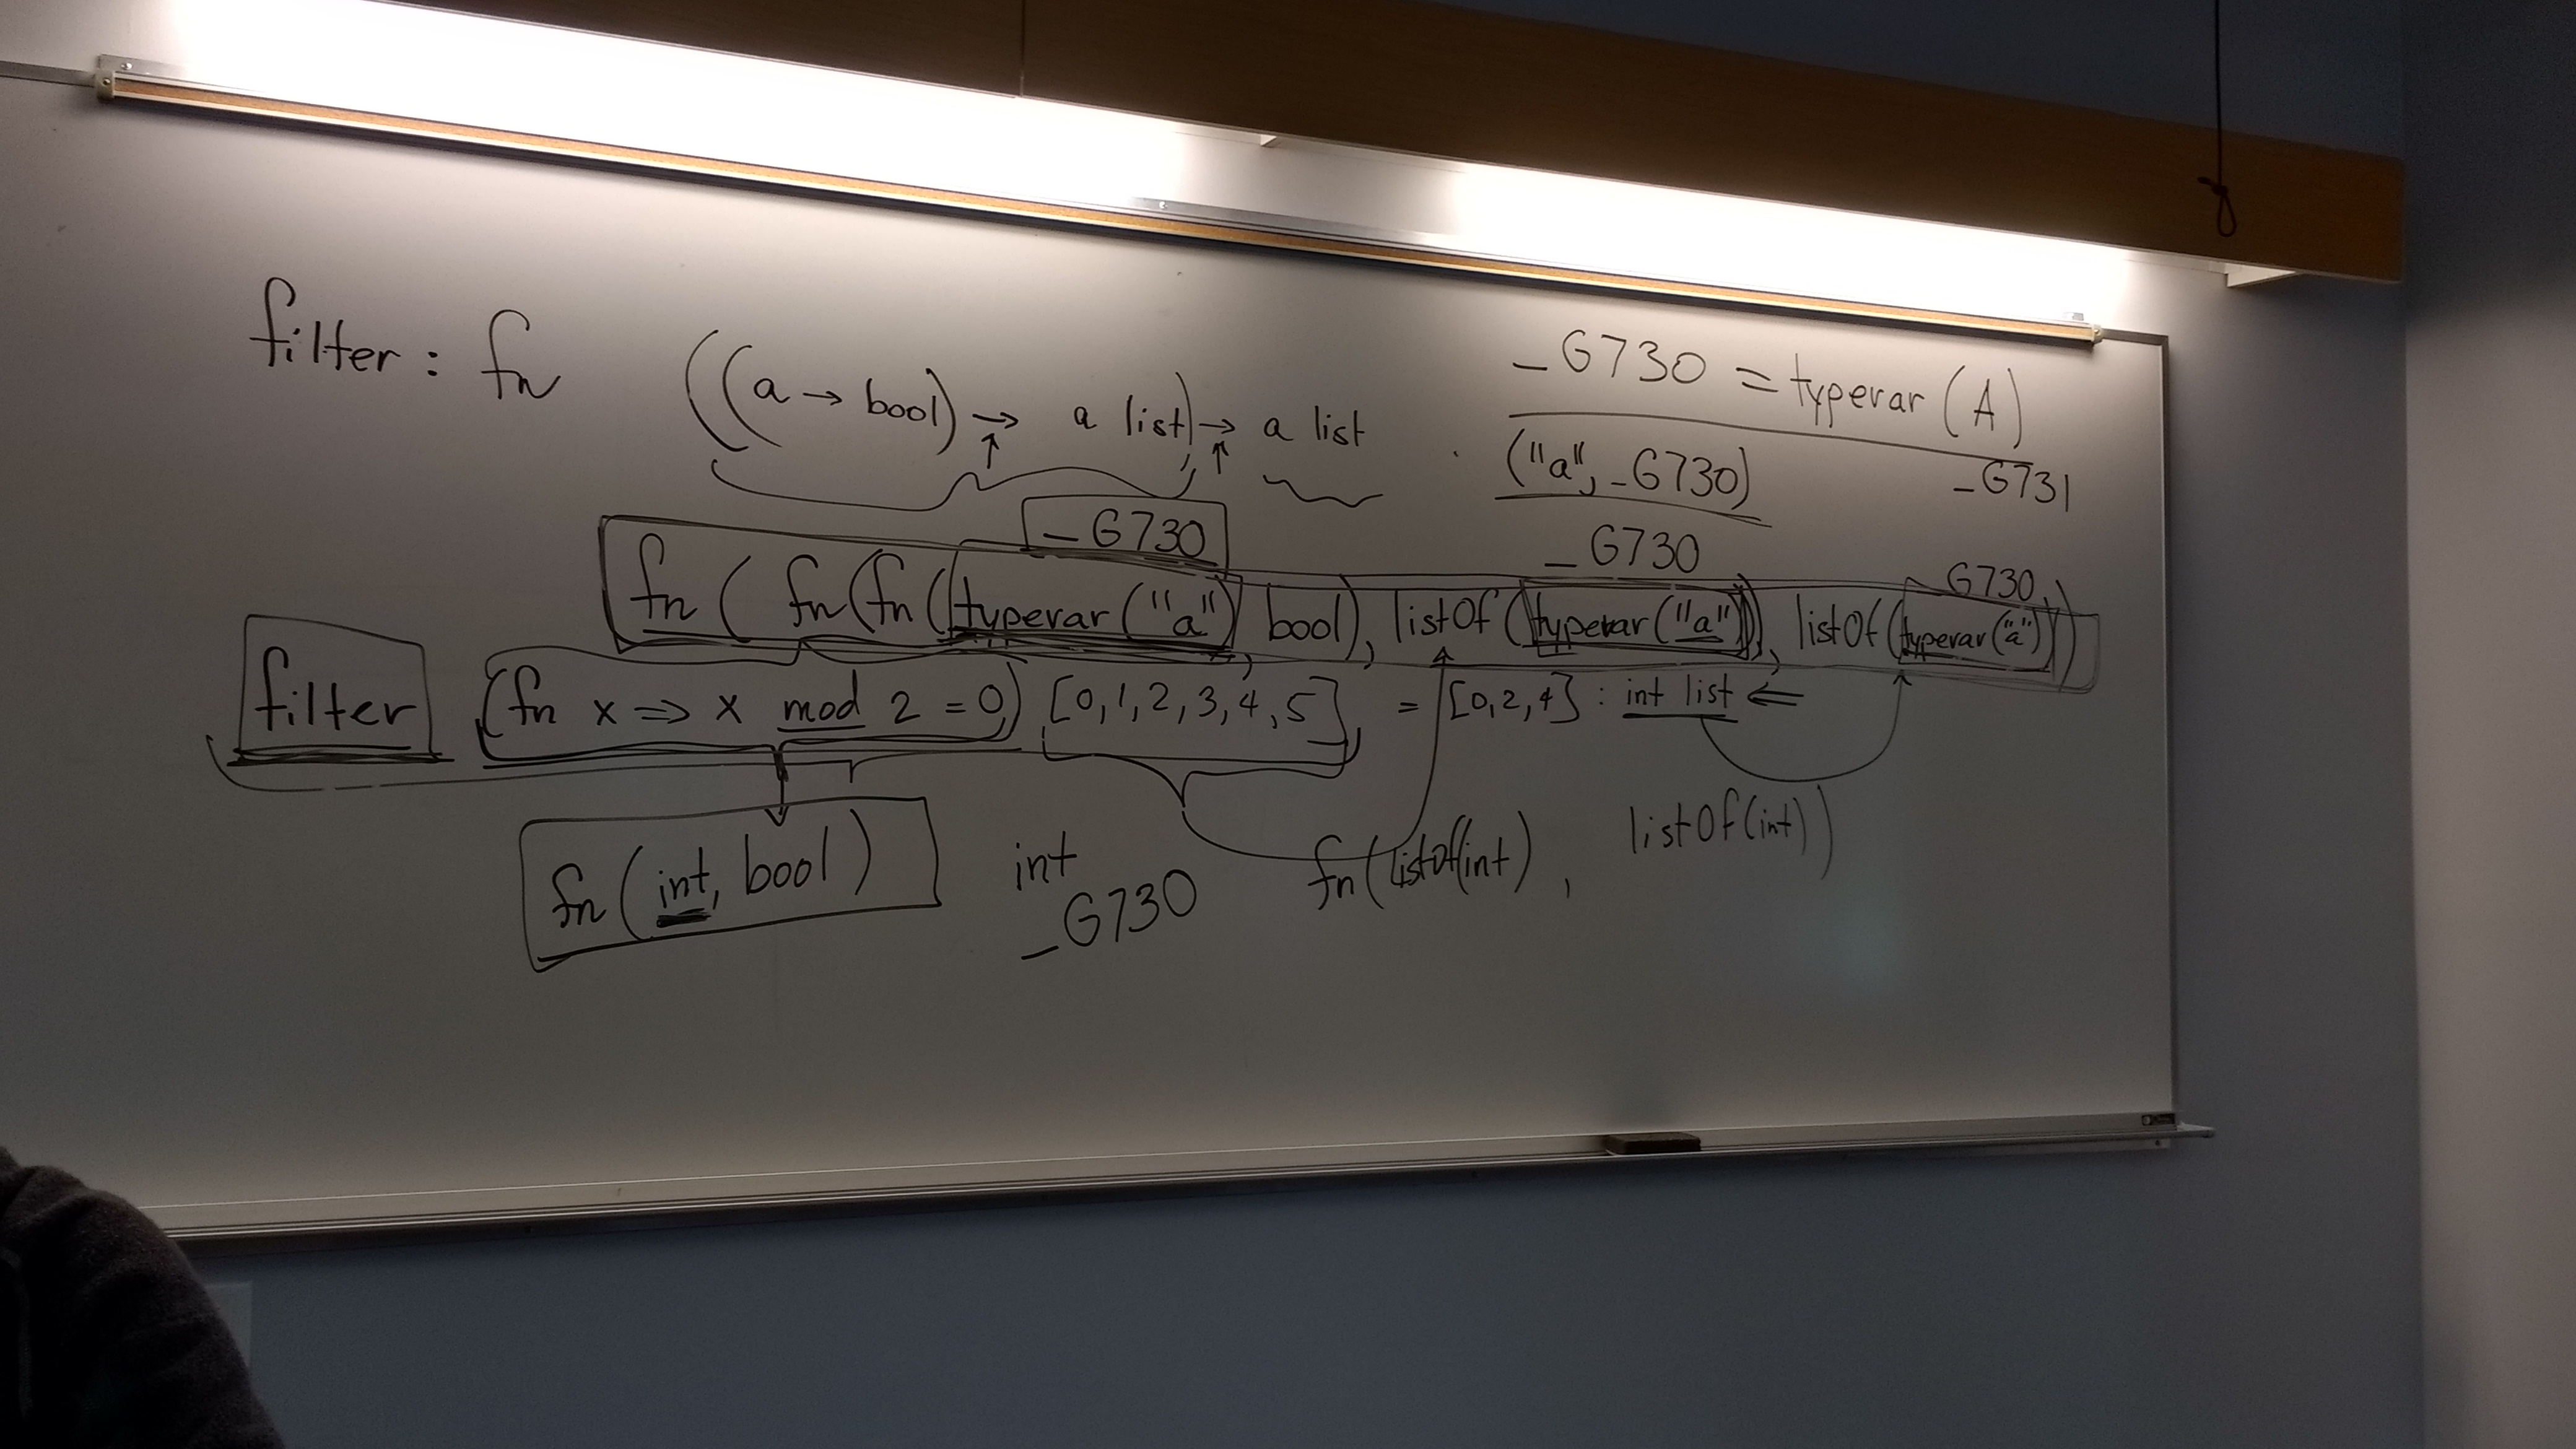 filter : fn ((a → bool) → a list) → a list
_G730 = typevar (A)
("a", _G730) _G731
_G730 _G730 G730
fn ( fn (fn (typevar ("a"), bool), listOf (typevar ("a")), listOf (typevar ("a")))
filter (fn x => x mod 2 = 0) [0, 1, 2, 3, 4, 5] = [0, 2, 4] : int list ⇐
fn (int, bool) int fn (listOf(int), listOf(int))
_G730